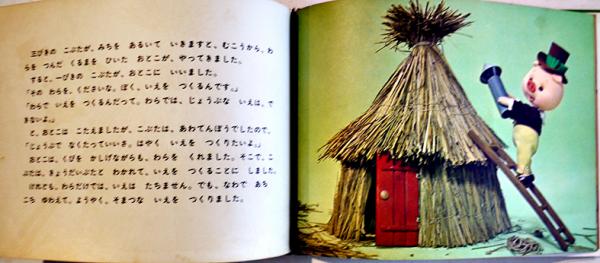 三びきの こぶたが、みちを あるいて いきますと、むこうから、わ
らを つんだ くるまを ひいた おとこが、やってきました。
すると、一ぴきの こぶたが、おとこに いいました。
「その わらを、くださいな。ぼく、いえを つくるんです。」
「わらで いえを つくるんだって。わらでは、じょうぶな いえは、で
きないよ。」
と、おとこは こたえましたが、こぶたは、あわてんぼうでしたので、
「じょうぶで なくたっていいさ。はやく いえを つくりたいよ。」
おとこは、くびを かしげながらも、わらを くれました。そこで、こ
ぶたは、きょうだいぶたと わかれて、いえを つくることに しました。
けれども、わらだけでは、いえは たちません。でも、なわで あち
こち ゆわえて、ようやく、そまつな いえを つくりました。